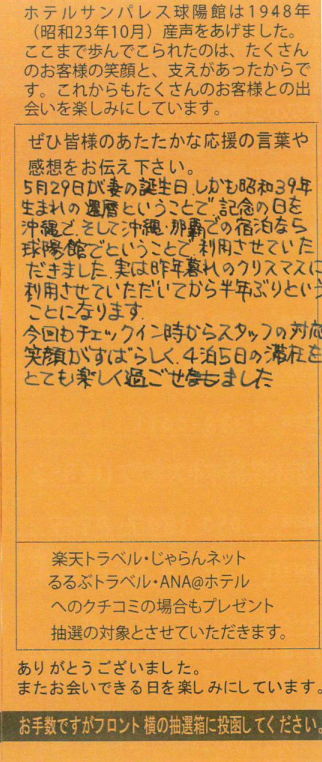 ホテルサンパレス球陽館は1948年
（昭和23年10月）産声をあげました。
ここまで歩んでこられたのは、たくさん
のお客様の笑顔と、支えがあったからで
す。これからもたくさんのお客様との出
会いを楽しみにしています。
ぜひ皆様のあたたかな応援の言葉や
感想をお伝え下さい。
5月29日が妻の誕生日.しかも昭和39年
生まれの還暦ということで記念の日を
沖縄で.そして沖縄・那覇での宿泊なら
球陽館でということで利用させていた
だきました.実は昨年暮れのクリスマスに
利用させていただいてから半年ぶりという
ことになります.
今回もチェックイン時からスタッフの対応
笑顔がすばらしく.4泊5日の滞在を
とても楽しく過ごせました
楽天トラベル・じゃらんネット
るるぶトラベル・ANA@ホテル
へのクチコミの場合もプレゼント
抽選の対象とさせていただきます。
ありがとうございました。
またお会いできる日を楽しみにしています。
お手数ですがフロント横の抽選箱に投函してください。